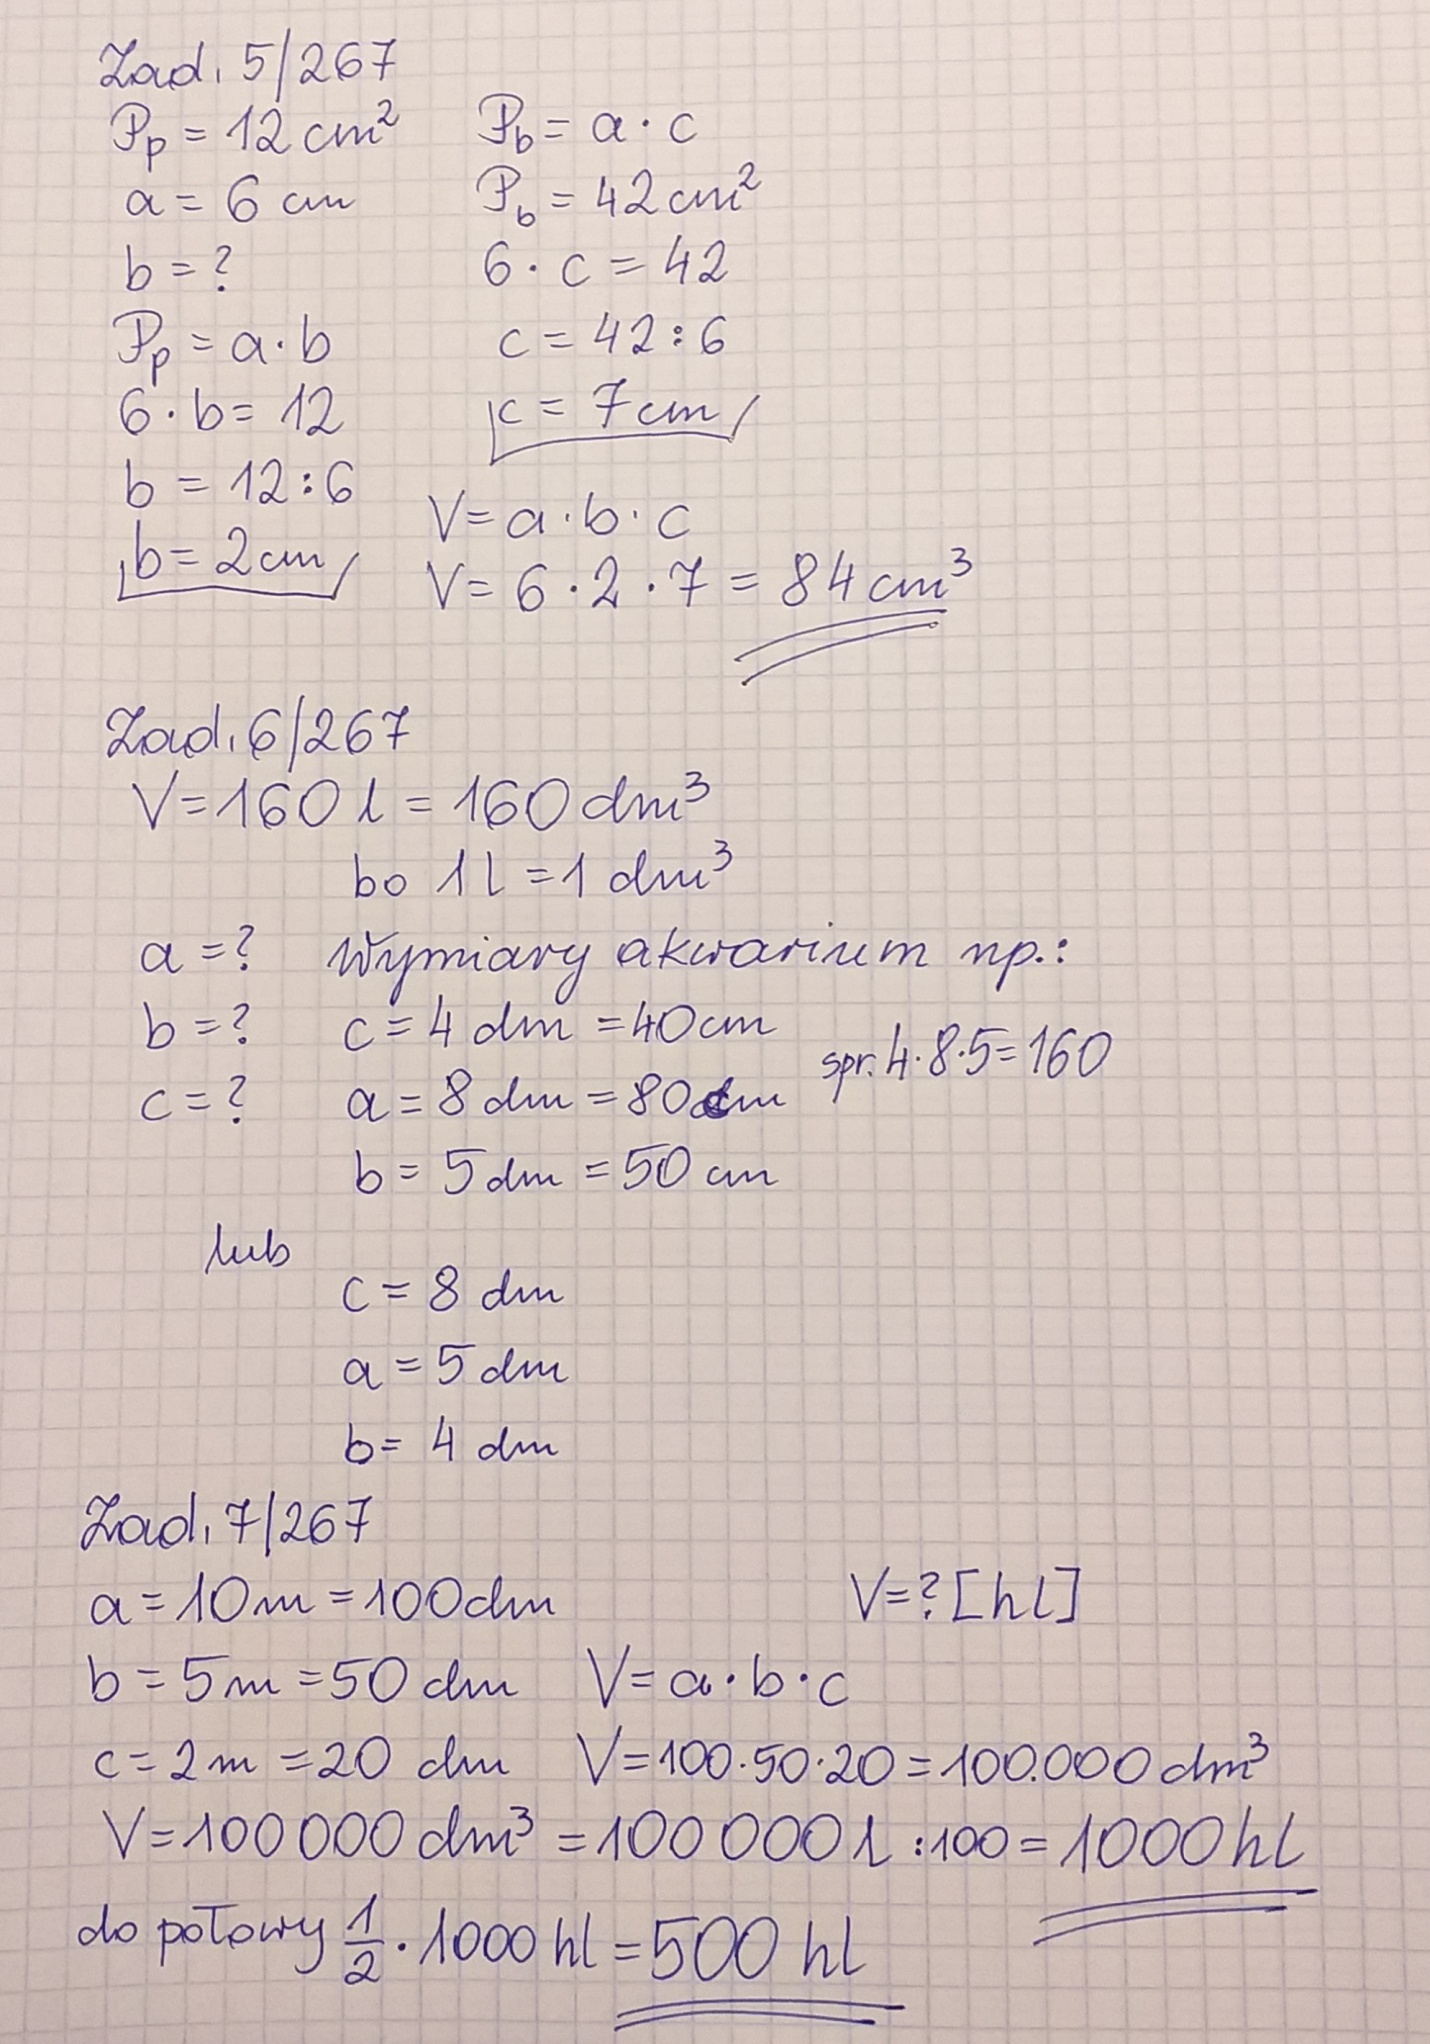 Zad. 5/267
Pp = 12 cm²
a = 6 cm
b = ?
Pp = a · b
6 · b = 12
b = 12 : 6
b = 2 cm
Pb = a · c
Pb = 42 cm²
6 · c = 42
c = 42 : 6
c = 7 cm
V = a · b · c
V = 6 · 2 · 7 = 84 cm³
Zad. 6/267
V = 160 l = 160 dm³
bo 1 l = 1 dm³
a = ? Wymiary akwarium np.:
b = ? c = 4 dm = 40 cm
spr. 4 · 8 · 5 = 160
c = ? a = 8 dm = 80 cm
b = 5 dm = 50 cm
lub
c = 8 dm
a = 5 dm
b = 4 dm
Zad. 7/267
a = 10 m = 100 dm V = ? [hl]
b = 5 m = 50 dm V = a · b · c
c = 2 m = 20 dm V = 100 · 50 · 20 = 100.000 dm³
V = 100 000 dm³ = 100 000 l : 100 = 1000 hl
do połowy 1/2 · 1000 hl = 500 hl